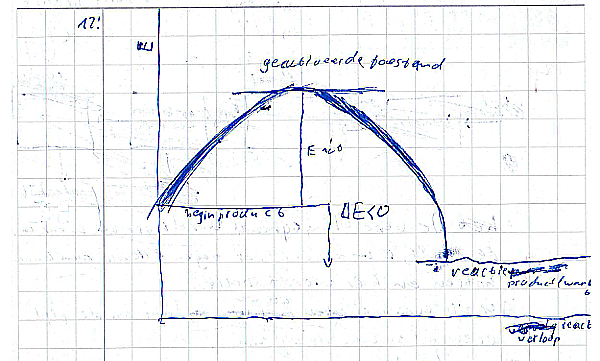 12!
E
geactiveerde toestand
beginproduct
ΔE<0
reactie
product/warmte
verloop